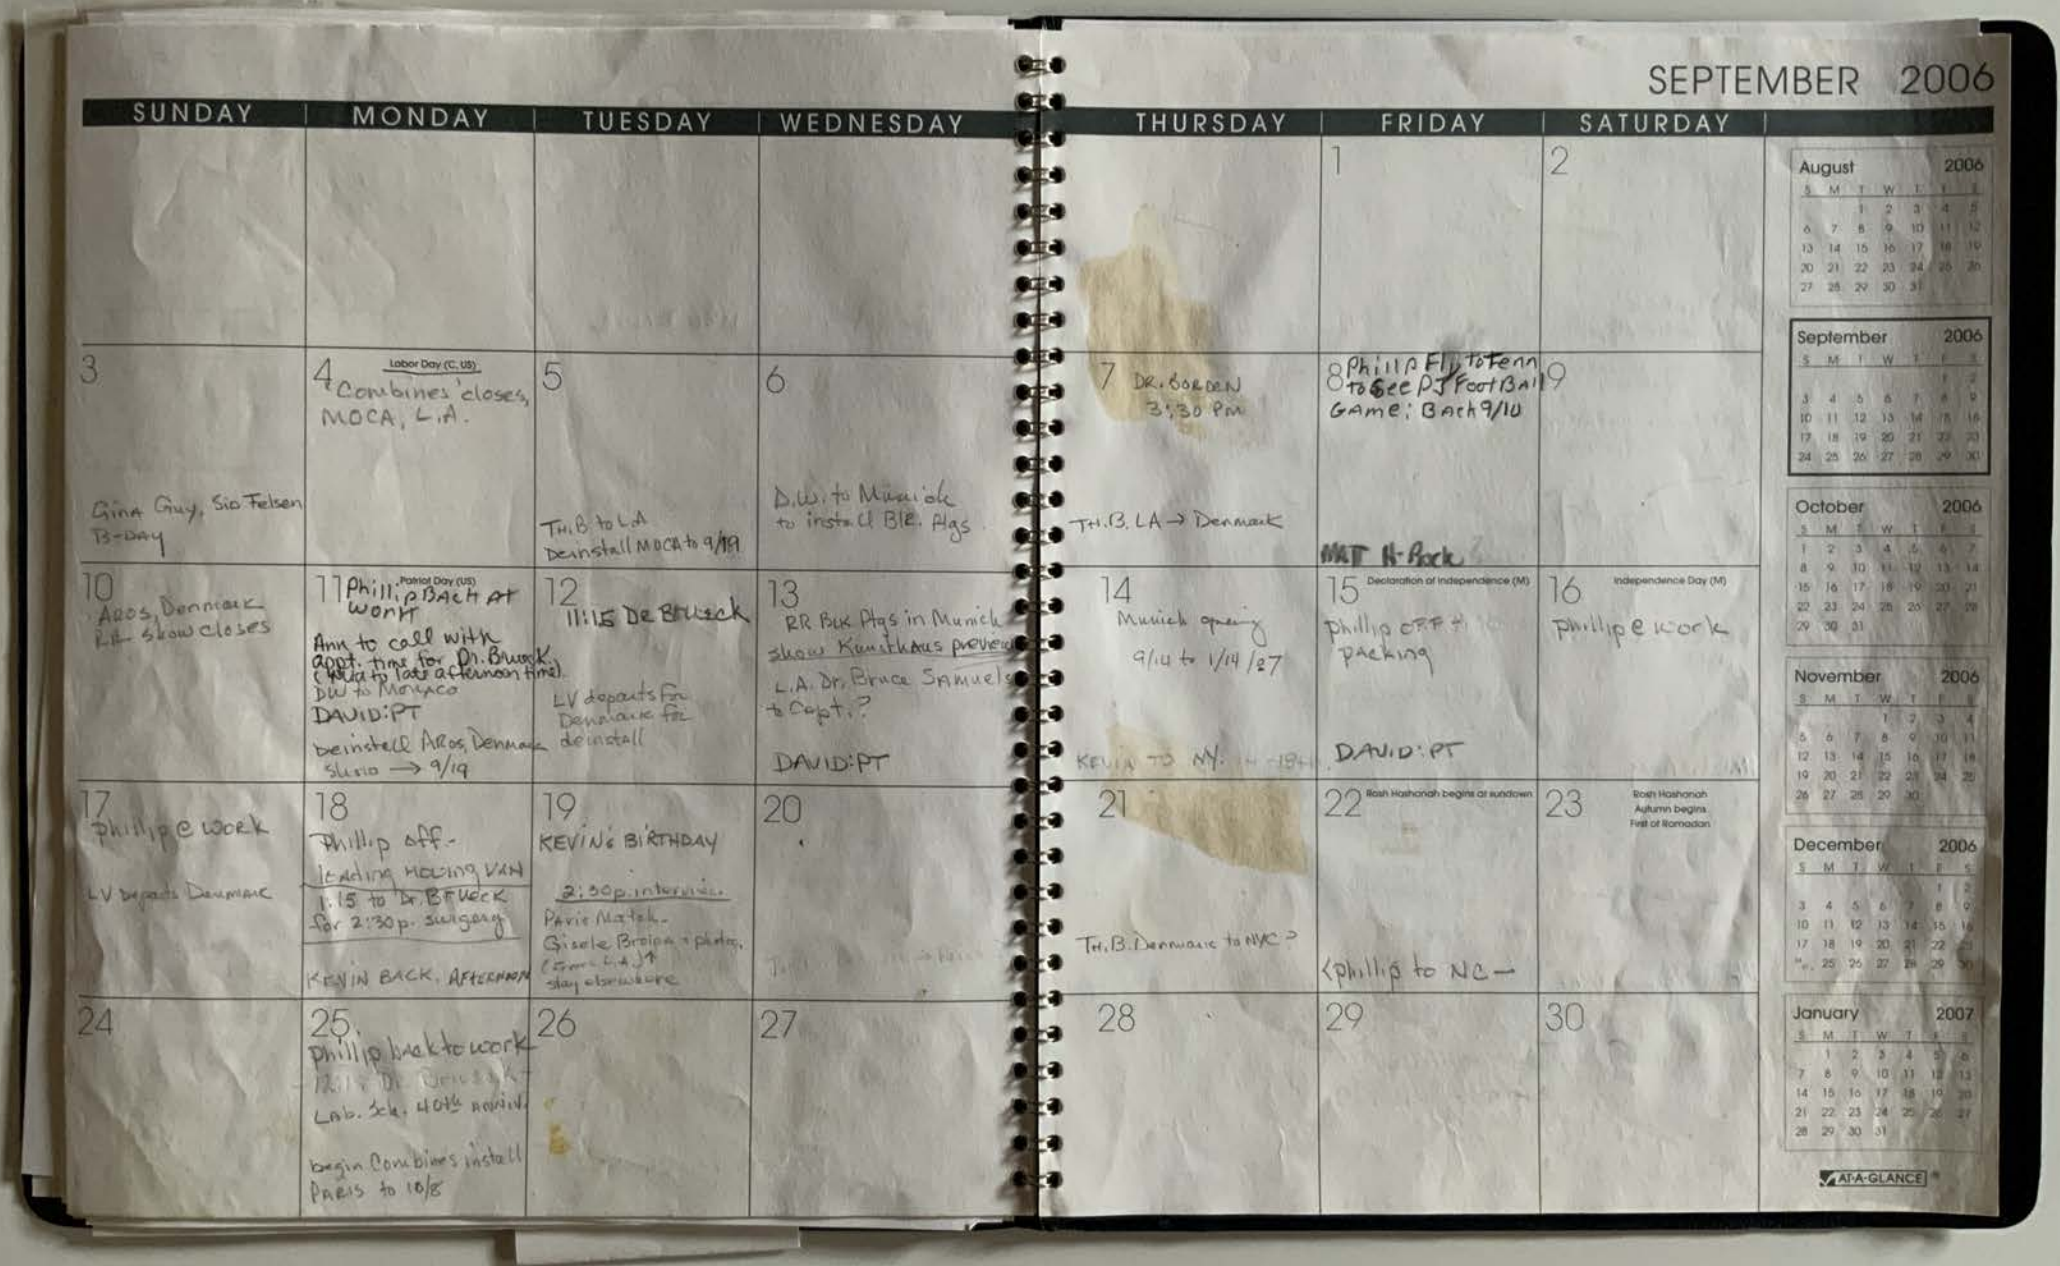 SEPTEMBER 2006
SUNDAY MONDAY TUESDAY WEDNESDAY THURSDAY FRIDAY SATURDAY
1
2
3
Gina Guy, Sid Felsen
B-DAY
4
Labor Day (C, US)
"Combines" closes,
MOCA, L.A.
5
TH.B to LA
Deinstall MOCA to 9/19
6
D.W. to Munich
to install Blk. Ptgs
7
DR. BORDEN
3:30 PM
TH.B. LA → Denmark
8
Phillip Fly to Tenn
to See PJ FootBall
GAME; BACK 9/10
MATT H-Back
9
10
AROS, Denmark
RR show closes
11
Patriot Day (US)
Phillip BACK AT
WORK
Ann to call with
appt. time for Dr. Brueck
(mid to late afternoon time).
DW to Monaco
DAVID:PT
deinstall ARos, Denmark
→ 9/19
12
11:15 DR BRUECK
LV departs for
Denmark for
deinstall
13
RR BLK Ptgs in Munich
show Kunsthaus preview
L.A. Dr. Bruce Samuels
to Capt.?
DAVID:PT
14
Munich opening
9/14 to 1/14/07
KEVIN TO NY.
15
Declaration of Independence (M)
phillip OFF
packing
DAVID:PT
16
Independence Day (M)
phillip @ work
17
phillip @ work
LV Departs Denmark
18
Phillip off -
loading MOVING VAN
1:15 to Dr. BRUECK
for 2:30p. surgery
KEVIN BACK. AFTERNOON
19
KEVIN'S BIRTHDAY
2:30p. interview
Paris Match -
Gisele + photog.
(from L.A.)↑
stay elsewhere
20
21
TH.B. Denmark to NYC?
22
Rosh Hashanah begins at sundown
<phillip to NC —
23
Rosh Hashanah
Autumn begins
First of Ramadan
24
25
phillip back to work
Dr. Brueck
LAB. Sch. 40th ANNIV.
begin Combines install
PARIS to 10/8
26
27
28
29
30
August 2006
S M T W T F S
1 2 3 4 5
6 7 8 9 10 11 12
13 14 15 16 17 18 19
20 21 22 23 24 25 26
27 28 29 30 31
September 2006
S M T W T F S
1 2
3 4 5 6 7 8 9
10 11 12 13 14 15 16
17 18 19 20 21 22 23
24 25 26 27 28 29 30
October 2006
S M T W T F S
1 2 3 4 5 6 7
8 9 10 11 12 13 14
15 16 17 18 19 20 21
22 23 24 25 26 27 28
29 30 31
November 2006
S M T W T F S
1 2 3 4
5 6 7 8 9 10 11
12 13 14 15 16 17 18
19 20 21 22 23 24 25
26 27 28 29 30
December 2006
S M T W T F S
1 2
3 4 5 6 7 8 9
10 11 12 13 14 15 16
17 18 19 20 21 22 23
25 26 27 28 29 30
January 2007
S M T W T F S
1 2 3 4 5 6
7 8 9 10 11 12 13
14 15 16 17 18 19 20
21 22 23 24 25 26 27
28 29 30 31
AT-A-GLANCE ®